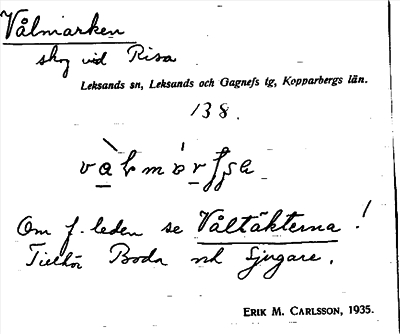 Vålmarken
skog vid Risa
Leksands sn, Leksands och Gagnefs tg, Kopparbergs län.
138.
Om f. leden se Våltäkterna!
Tillhör Boda och Sjugare.
ERIK M. CARLSSON, 1935.